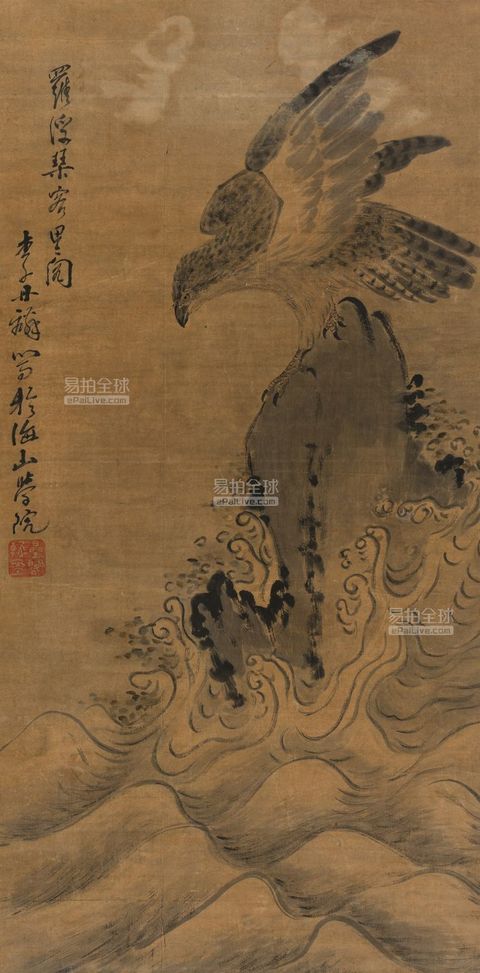 羅浮琴客
李子丹寫於海山學院
易拍全球
ePaiLive.com
易拍全球
ePaiLive.com
易拍全球
ePaiLive.com